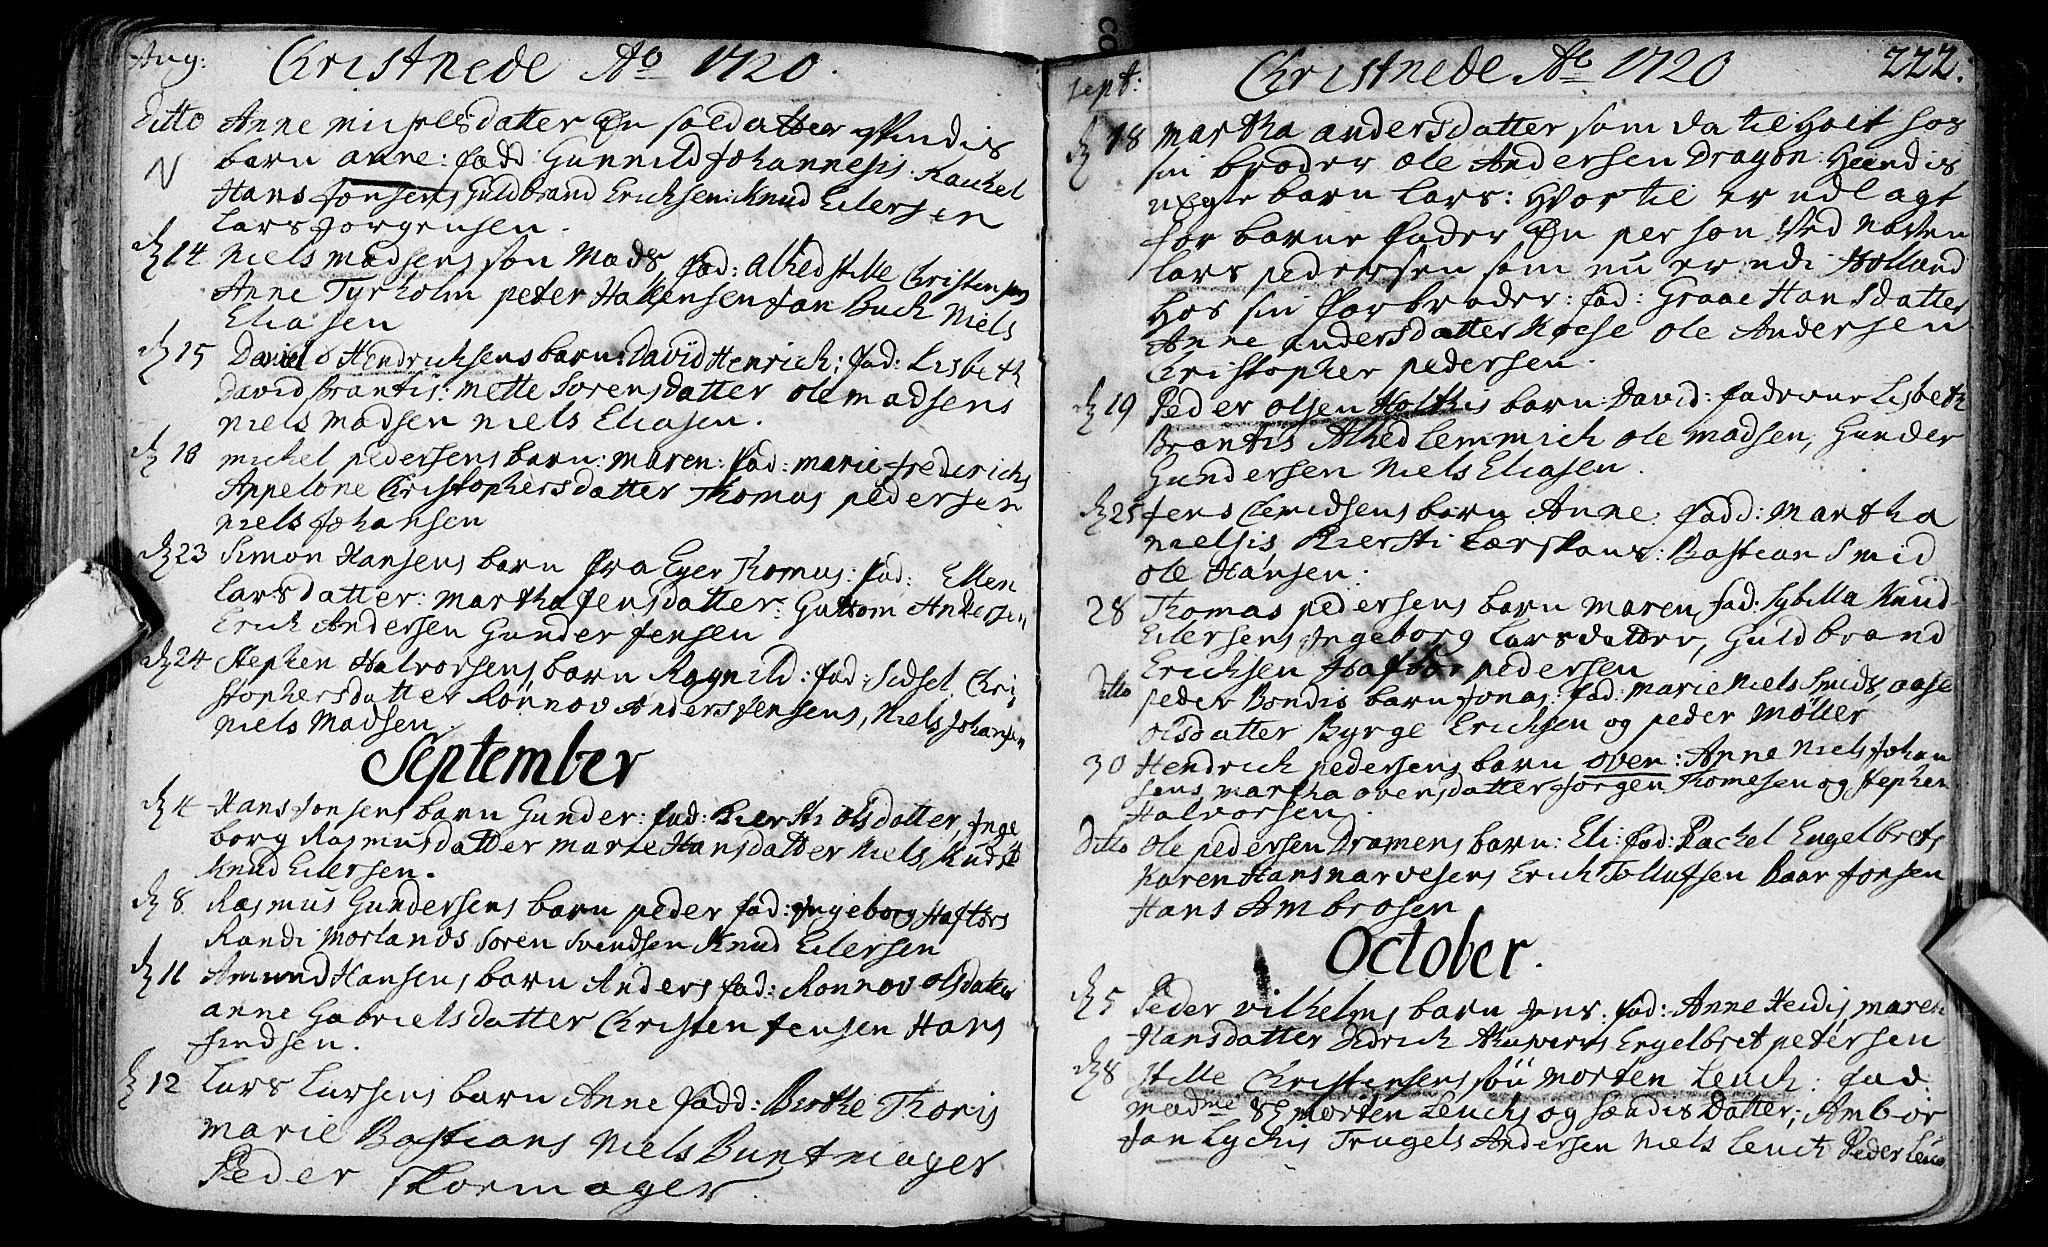 Aug: Christnede Ao 1720.
Ditto Anne michelsdatter En soldatter Qvindis
N barn anne: fadd: Gunnild Johannesis: Rachel
Hans Jonsens Guldbrand Ericksen: Knud Eilersen
Lars Jorgensen.
14 Niels madsens søn Mads, fad: Alhed Stille Christensens
Anne Tyrholm peter Hakensen Jan Buch Niels
Eliasen
15 Daniel Hendricksens barn: David Henrich: fad: Lisbeth
David Brantis: mette Sorensdatter ole madsens
niels madsen niels Eliasen.
18 michel pedersens barn: maren: fad: marie frederichs
Appelone Christophersdatter Thomas pedersen
niels Johansen
23 Simon Hansens barn fra Eger Thomas: fad: Ellen
Larsdatter: martha Jensdatter: Guttom Andersen
Erich Andersen Gunder Jensen
24 Stephen Halvorsens barn Ragnild: fad: Sidsel Chri
stophersdatter Rønnov Anders Jensens, Niels Johansen
niels Madsen.
September
4 Hans Jonsens barn Gunder: fad: Kiersti olsdatter, Inge
borg Rasmusdatter marie Hansdatter Niels Knudst
Knud Eilersen.
8 Rasmus Gundersens barn peder fad: Ingeborg Haftors
Randi Morlands Soren Svendsen Knud Eilersen
11 Amund Hansens barn Anders fad: Ronnov olsdatter
anne Gabrielsdatter Christen Jensen Hans
Findsen.
12 Lars Larsens barn Anne fadd: Berthe Thoris
marie Bastians Niels Buntmager
Peder Skormager.
Sept: Christnede Ao 1720 222.
18 Martha andersdatter som da til Holt hos
sin broder ole Andersen Dragon: Hendis
uEgte barn Lars: Hvor til er udlagt
for barne fader En person ved naven
Lars pedersen som nu er udi Holland
Hos sin farbroder: fad: Graae Hansdatter
Anne andersdatter ole Andersen
Christopher pedersen.
19 Peder olsen Holthis barn: David: fadrene Lisbeth
Brantis Alhed Lemmich ole madsen, Gunder
Gundersen Niels Eliasen.
25 Jens barn Anne: fadd: Martha
nielsis Kiersti: Bastian Smid
ole Hansen:
28 Thomas pedersens barn maren fad: Sybilla Knud
Eilersens Ingeborg Larsdatter, Guldbrand
Ericksen Haftor pedersen
ditto peder Bondis barn Jonas: fad: marie Niels Smids, aase
olsdatter Byrge Ericksen og peder Møller
30 Hendrick pedersens barn oven: Anne Niels Johan
sens martha ovensdatter Jorgen Thomesen og Stephen
Halvorsen.
Ditto ole pedersen Dramens barn: Eli: fad: Rachel Engelbrets
Karen Hans narvesens Erich Tollefsen Baar Jonsen
Hans Ambrosen
October.
5 Peder vilhelms barn Jens: fad: Anne Heidis, maren
Hansdatter Didrick Engelbret petersen
8 Stille Christensens søn morten Leuch: fad:
madme Sl morten Leuchs og Datter, Ambor
Jan Lychis Trugels Andersen Niels Leuch Peder Leuch